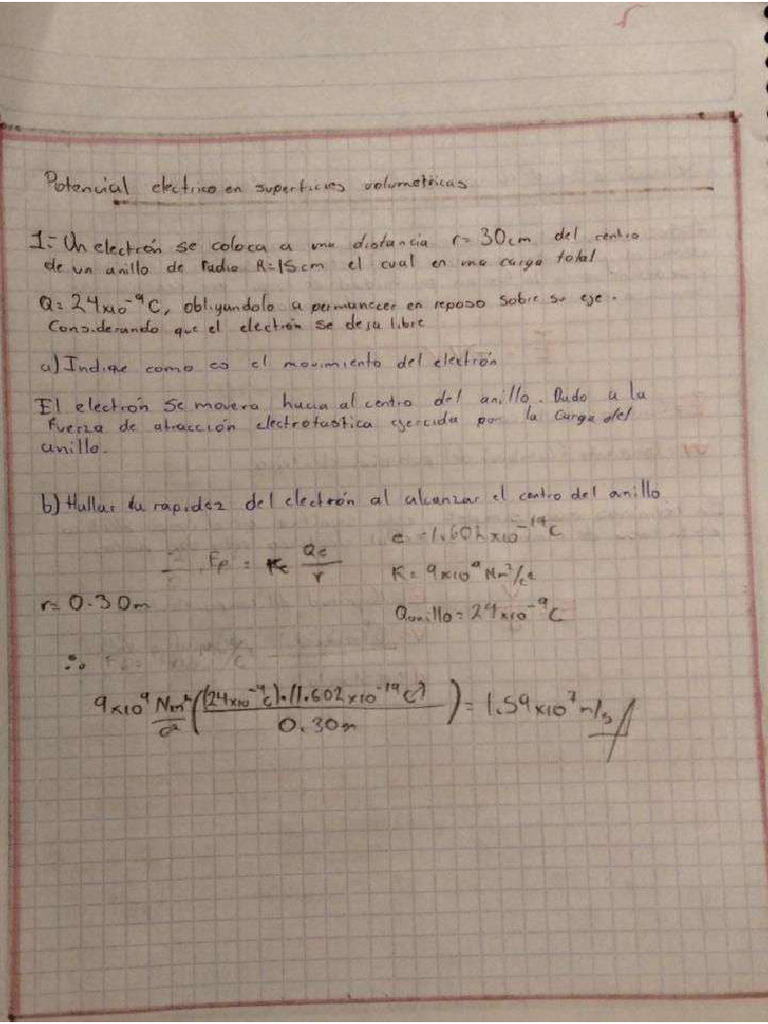 Potencial electrico en superficies volumetricas
1.- Un electrón se coloca a una distancia r= 30cm del centro
de un anillo de radio R=15cm el cual en una carga total
Q= 24x10⁻⁹C, obligandolo a permanecer en reposo sobre su eje.
Considerando que el electrón se deja libre
a) Indique como es el movimiento del electrón
El electrón se movera hacia al centro del anillo. Dado a la
fuerza de atracción electrotastica ejercida por la carga del
anillo.
b) Hallar la rapidez del electrón al alcanzar el centro del anillo
e = 1.602x10⁻¹⁹C
Fp = Ke Qe/r
K= 9x10⁹ Nm²/c²
r= 0.30m
Qanillo= 24x10⁻⁹C
∴
9x10⁹ Nm²/C² ((24x10⁻⁹C).(1.602x10⁻¹⁹C)/0.30m) = 1.59x10⁷m/s